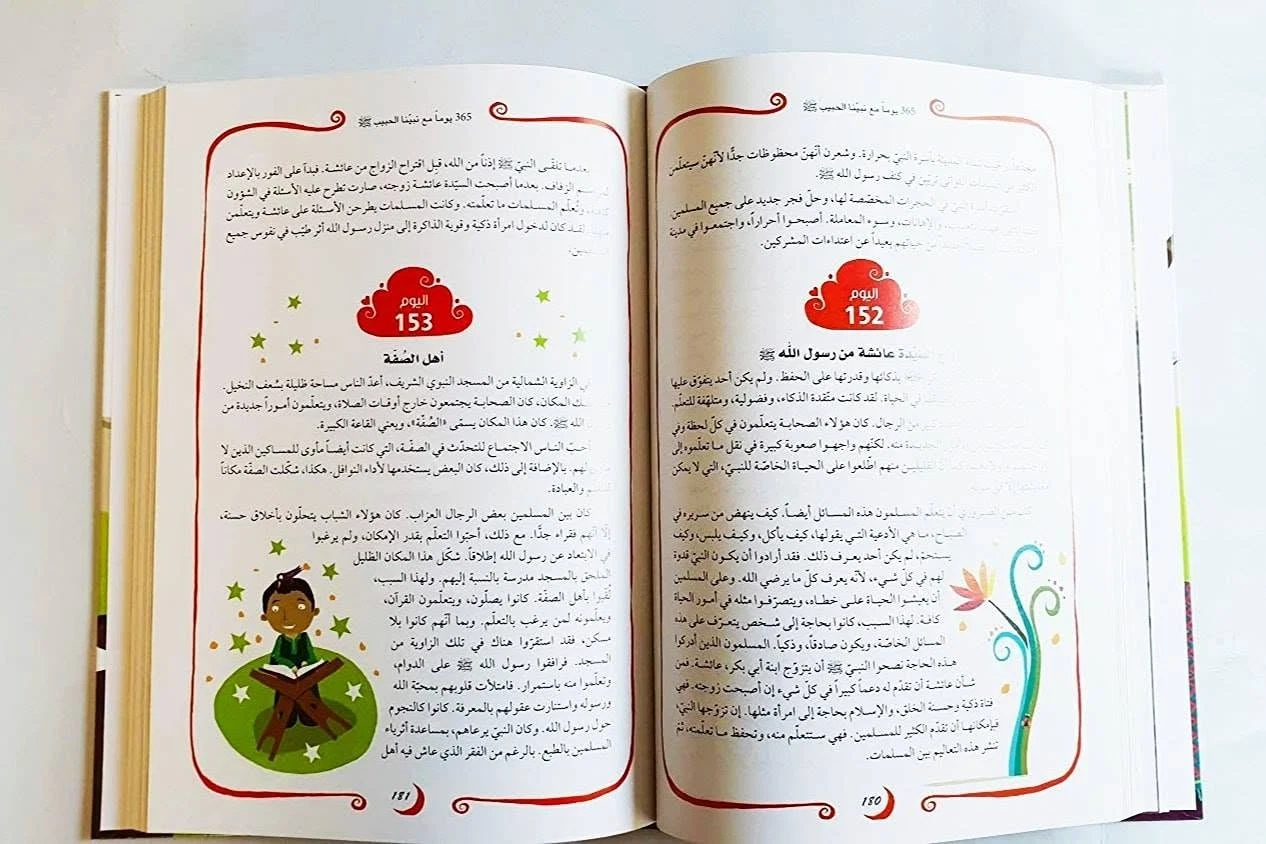 365 يوماً مع نبيّنا الحبيب ﷺ
بأسرة النبيّ بحرارة. وشعرن أنّهنّ محظوظات جدًّا لأنّهنّ سيتعلّمن
اللواتي تربّين في كنف رسول الله ﷺ.
أسرة النبيّ في الحجرات المخصّصة لها، وحلّ فجر جديد على جميع المسلمين.
والإهانات، وسوء المعاملة. أصبحوا أحراراً، واجتمعوا في مدينة
حياتهم بعيداً عن اعتداءات المشركين.
اليوم
152
السيّدة عائشة من رسول الله ﷺ
بذكائها وقدرتها على الحفظ. ولم يكن أحد يتفوّق عليها
في الحياة. لقد كانت متّقدة الذكاء، وفضولية، ومتلهّفة للتعلّم.
من الرجال. كان هؤلاء الصحابة يتعلّمون في كلّ لحظة وفي
منه. لكنّهم واجهوا صعوبة كبيرة في نقل ما تعلّموه إلى
القليلين منهم اطّلعوا على الحياة الخاصّة للنبيّ، التي لا يمكن
الضروري أن يتعلّم المسلمون هذه المسائل أيضاً. كيف ينهض من سريره في
الصباح، ما هي الأدعية التي يقولها، كيف يأكل، وكيف يلبس، وكيف
يستحمّ، لم يكن أحد يعرف ذلك. فقد أرادوا أن يكون النبيّ قدوة
لهم في كلّ شيء، لأنّه يعرف كلّ ما يرضي الله. وعلى المسلمين
أن يعيشوا الحياة على خطاه، ويتصرّفوا مثله في أمور الحياة
كافة. لهذا السبب، كانوا بحاجة إلى شخص يتعرّف على هذه
المسائل الخاصّة، ويكون صادقاً، وذكياً. المسلمون الذين أدركوا
هذه الحاجة نصحوا النبيّ ﷺ أن يتزوّج ابنة أبي بكر، عائشة. فمن
شأن عائشة أن تقدّم له دعماً كبيراً في كلّ شيء إن أصبحت زوجته. فهي
فتاة ذكية وحسنة الخلق، والإسلام بحاجة إلى امرأة مثلها. إن تزوّجها النبيّ،
فبإمكانها أن تقدّم الكثير للمسلمين. فهي ستتعلّم منه، وتحفظ ما تعلّمته، ثمّ
تنشر هذه التعاليم بين المسلمات.
180
365 يوماً مع نبيّنا الحبيب ﷺ
بعدما تلقّى النبيّ ﷺ إذناً من الله، قبل اقتراح الزواج من عائشة. فبدآ على الفور بالإعداد
الزفاف. بعدما أصبحت السيّدة عائشة زوجته، صارت تطرح عليه الأسئلة في الشؤون
وتُعلّم المسلمات ما تعلّمته. وكانت المسلمات يطرحن الأسئلة على عائشة ويتعلّمن
لقد كان لدخول امرأة ذكية وقوية الذاكرة إلى منزل رسول الله أثر طيّب في نفوس جميع
اليوم
153
أهل الصُفّة
في الزاوية الشمالية من المسجد النبوي الشريف، أعدّ الناس مساحة ظليلة بسُعف النخيل.
المكان، كان الصحابة يجتمعون خارج أوقات الصلاة، ويتعلّمون أموراً جديدة من
الله ﷺ. كان هذا المكان يسمّى «الصُفّة»، ويعني القاعة الكبيرة.
أحبّ الناس الاجتماع للتحدّث في الصفّة، التي كانت أيضاً مأوى للمساكين الذين لا
لهم. بالإضافة إلى ذلك، كان البعض يستخدمها لأداء النوافل. هكذا، شكّلت الصفّة مكاناً
والعبادة.
كان بين المسلمين بعض الرجال العزاب. كان هؤلاء الشباب يتحلّون بأخلاق حسنة،
إلّا أنّهم فقراء جدًّا. مع ذلك، أحبّوا التعلّم بقدر الإمكان، ولم يرغبوا
في الابتعاد عن رسول الله إطلاقاً. شكّل هذا المكان الظليل
الملحق بالمسجد مدرسة بالنسبة إليهم. ولهذا السبب،
لُقّبوا بأهل الصفّة. كانوا يصلّون، ويتعلّمون القرآن،
ويعلّمونه لمن يرغب بالتعلّم. وبما أنّهم كانوا بلا
مسكن، فقد استقرّوا هناك في تلك الزاوية من
المسجد. فرافقوا رسول الله ﷺ على الدوام،
وتعلّموا منه باستمرار. فامتلأت قلوبهم بمحبّة الله
ورسوله واستنارت عقولهم بالمعرفة. كانوا كالنجوم
حول رسول الله. وكان النبيّ يرعاهم، بمساعدة أثرياء
المسلمين بالطبع. بالرغم من الفقر الذي عاش فيه أهل
181